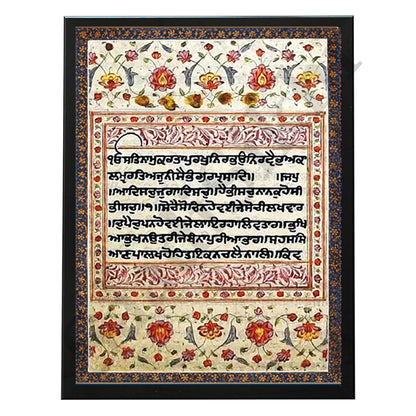 ੴਸਤਿਨਾਮੁਕਰਤਾਪੁਰਖੁਨਿਰਭਉਨਿਰਵੈਰੁਅਕਾ
ਲਮੂਰਤਿਅਜੂਨੀਸੈਭੰਗੁਰਪ੍ਰਸਾਦਿ॥ ॥ਜਪੁ
॥ਆਦਿਸਚੁਜੁਗਾਦਿਸਚੁ॥ਹੈਭੀਸਚੁਨਾਨਕਹੋਸੀ
ਭੀਸਚੁ॥੧॥ਸੋਚੈਸੋਚਿਨਹੋਵਈਜੇਸੋਚੀਲਖਵਾਰ॥
ਚੁਪੈਚੁਪਨਹੋਵਈਜੇਲਾਇਰਹਾਲਿਵਤਾਰ॥ਭੁਖਿ
ਆਭੁਖਨਉਤਰੀਜੇਬੰਨਾਪੁਰੀਆਭਾਰ॥ਸਹਸਸਿ
ਆਣਪਾਲਖਹੋਹਿਤਇਕਨਚਲੈਨਾਲਿ॥ਕਿਵ